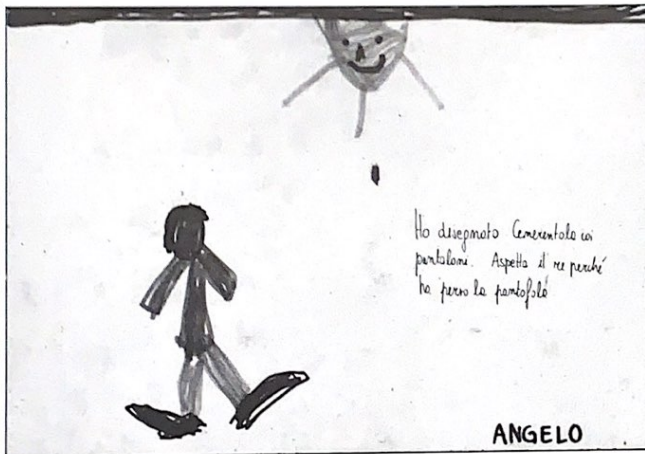 Ho disegnato Cenerentola coi
pantaloni. Aspetta il re perché
ha perso la pantofola
ANGELO